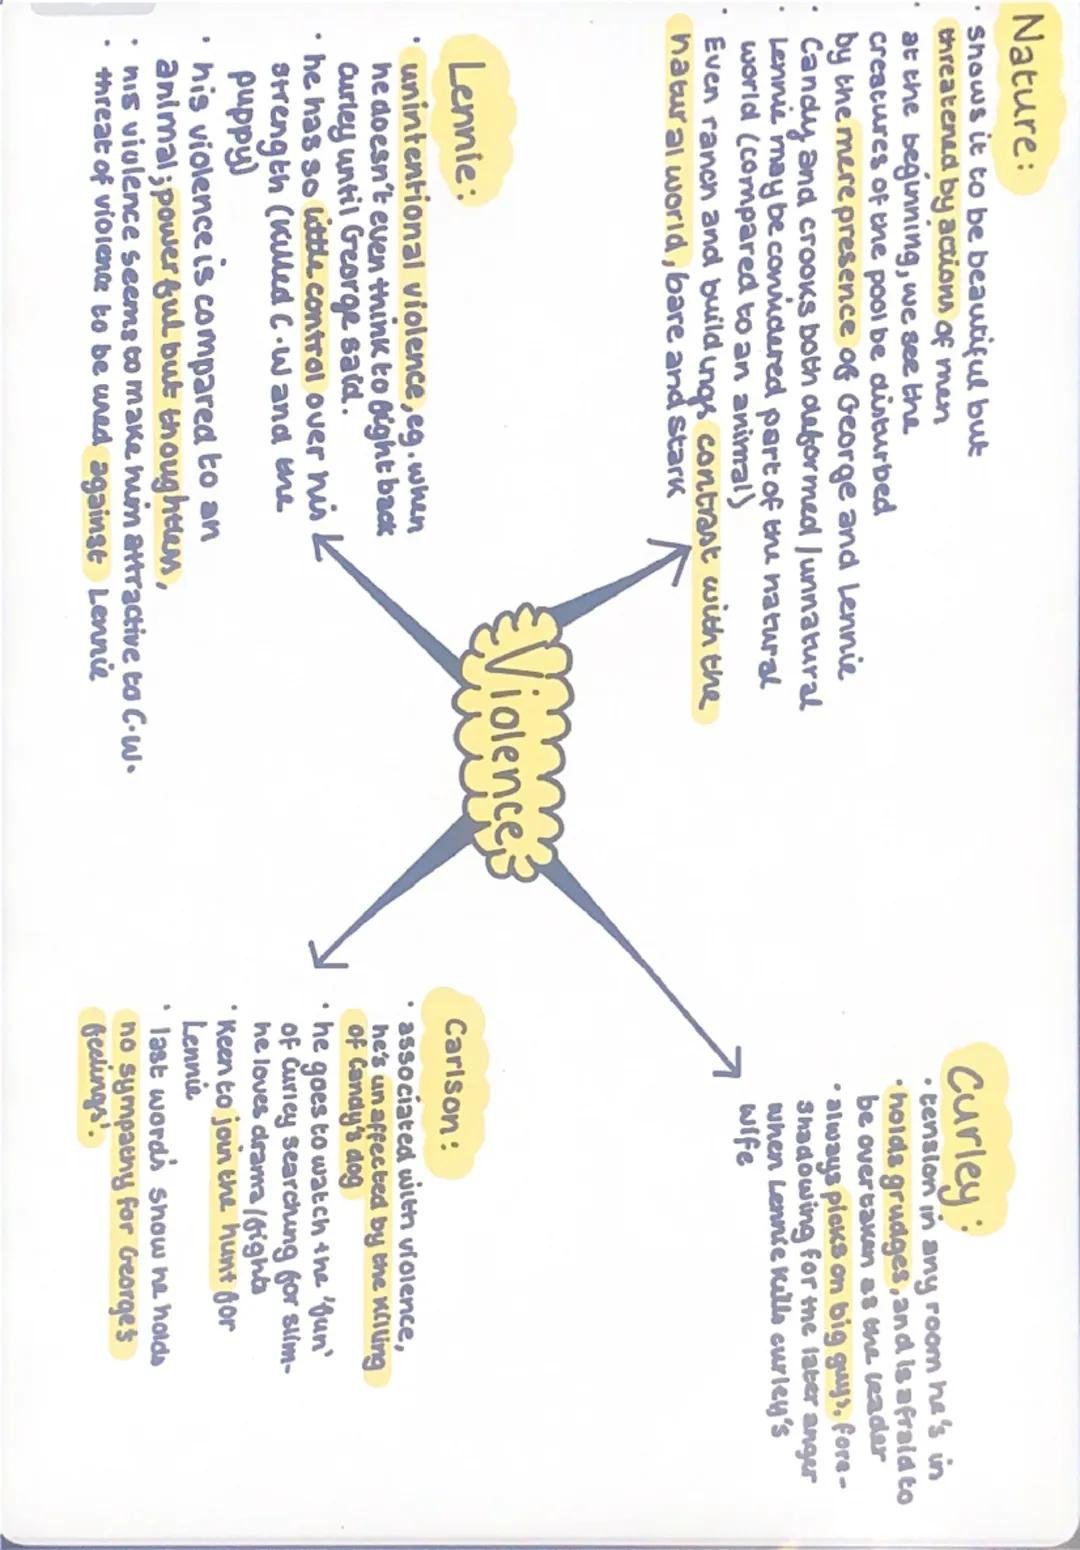 Nature:
· shows it to be beautiful but
threatened by actions of men
· at the beginning, we see the
creatures of the pool be disturbed
by the mere presence of George and Lennie
· Candy and crooks both deformed/unnatural
· Lennie may be considered part of the natural
world (compared to an animal)
· Even ranch and buildings contrast with the
natural world, bare and stark
Curley:
· tension in any room he's in
· holds grudges, and is afraid to
be overtaken as the leader
· always picks on big guys, fore-
shadowing for the later anger
when Lennie kills curley's
wife
Violence
Lennie:
· unintentional violence, eg. when
he doesn't even think to fight back
curley until George said.
· he has so little control over his
strength (killed C.W and the
puppy)
· his violence is compared to an
animal; powerful but thoughtless,
· his violence seems to make him attractive to C.W.
· threat of violence to be used against Lennie
Carlson:
· associated with violence,
he's unaffected by the killing
of Candy's dog
· he goes to watch the 'fun'
of Curley searching for slim-
he loves drama/fights
· Keen to join the hunt for
Lennie
· last words show he holds
no sympathy for George's
feelings'.